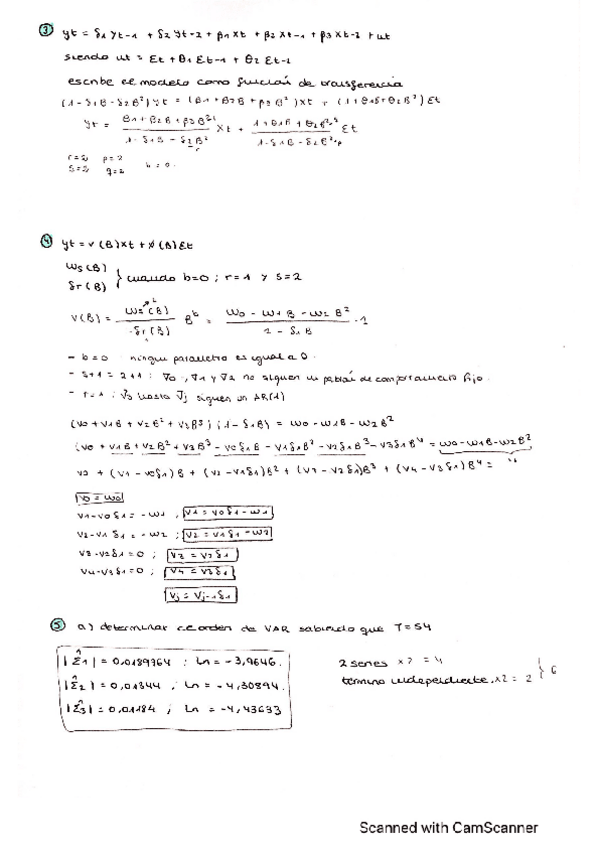 ③ yt = δ1 yt-1 + δ2 yt-2 + β1 xt + β2 xt-1 + β3 xt-2 + ut
siendo ut = εt + θ1 εt-1 + θ2 εt-2
escribe el modelo como función de transferencia
(1 - δ1B - δ2B²) yt = (β1 + β2B + β3B²) xt + (1 + θ1B + θ2B²) εt
yt = β1 + β2B + β3B² / 1 - δ1B - δ2B² xt + 1 + θ1B + θ2B² / 1 - δ1B - δ2B² εt
r=2 p=2
s=2 q=2 b=0
④ yt = v(B)xt + ψ(B)εt
ws(B)
δr(B) } cuando b=0 ; r=1 y s=2
v(B) = ws(B) / δr(B) B^b = w0 - w1B - w2B² / 1 - δ1B · 1
- b=0 ningún parámetro es igual a 0.
- s+1 = 2+1 : v0, v1 y v2 no siguen un patrón de comportamiento fijo.
- r=1 : v3 hasta vj siguen un AR(1)
(v0 + v1B + v2B² + v3B³) (1 - δ1B) = w0 - w1B - w2B²
(v0 + v1B + v2B² + v3B³ - v0δ1B - v1δ1B² - v2δ1B³ - v3δ1B⁴ = w0 - w1B - w2B²
v0 + (v1 - v0δ1)B + (v2 - v1δ1)B² + (v3 - v2δ1)B³ + (v4 - v3δ1)B⁴ = "
v0 = w0
v1 - v0δ1 = -w1 ; v1 = v0δ1 - w1
v2 - v1δ1 = -w2 ; v2 = v1δ1 - w2
v3 - v2δ1 = 0 ; v3 = v2δ1
v4 - v3δ1 = 0 ; v4 = v3δ1
vj = vj-1δ1
⑤ a) determinar el orden de VAR sabiendo que T=54
|Σ̂1| = 0,0189764 ; ln = -3,9646.
|Σ̂2| = 0,01344 ; ln = -4,30894.
|Σ̂3| = 0,01184 ; ln = -4,43633
2 series x2 = 4
término independiente x2 = 2 } 6
Scanned with CamScanner